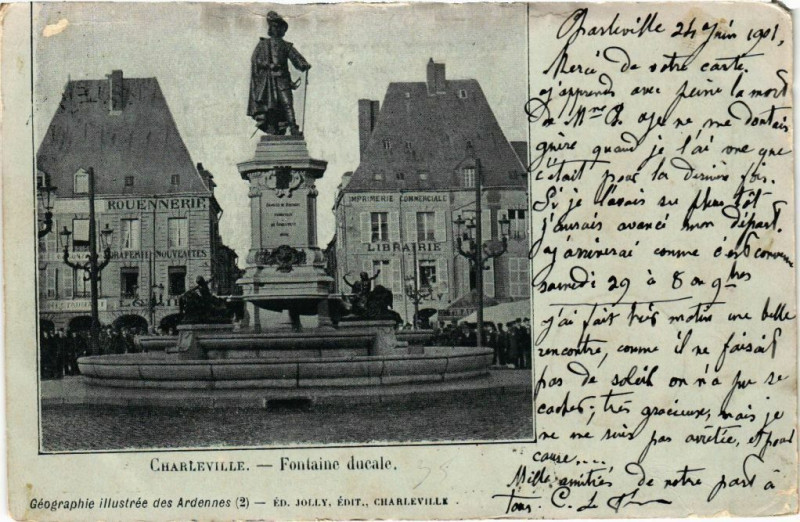 Charleville 24 Juin 1901,
Merci de votre carte.
J'apprends avec peine la mort
De Mme B. Je ne me doutais
guère quand je l'ai vue que
c'était pour la dernière fois.
Si je l'avais su plus tôt
j'aurais avancé mon départ.
J'arriverai comme c'est convenu
samedi 29 à 8 ou 9 hres
j'ai fait très matin une belle
rencontre, comme il ne faisait
pas de soleil on n'a pu se
cacher; très gracieuse, mais je
ne me suis pas arrêtée, et pour
cause....
Mille amitiés de notre part à
Tous. C. Le
ROUENNERIE
DRAPERIE NOUVEAUTÉS
IMPRIMERIE COMMERCIALE
LIBRAIRIE
JOLLY
CHARLEVILLE. — Fontaine ducale.
Géographie illustrée des Ardennes (2) — ÉD. JOLLY, ÉDIT., CHARLEVILLE.